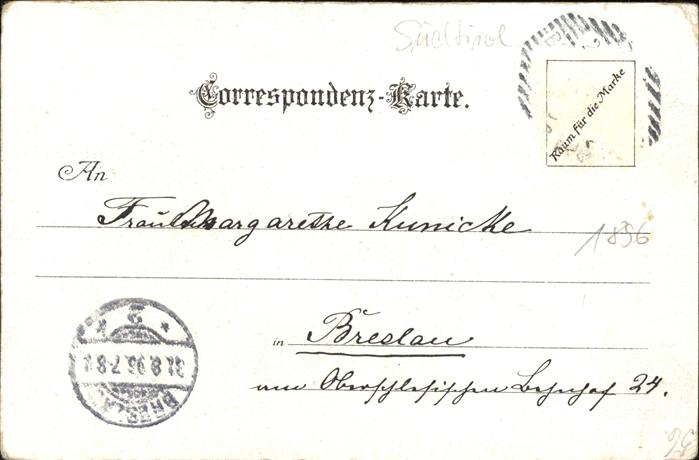 Südtirol
Correspondenz-Karte.
Raum für die Marke
An
Frau Margarethe Kunicke
1896
in Breslau
am Oberschlesischen Bahnhof 24.
2
* k *
31.8.96.7-8
BRESLAU